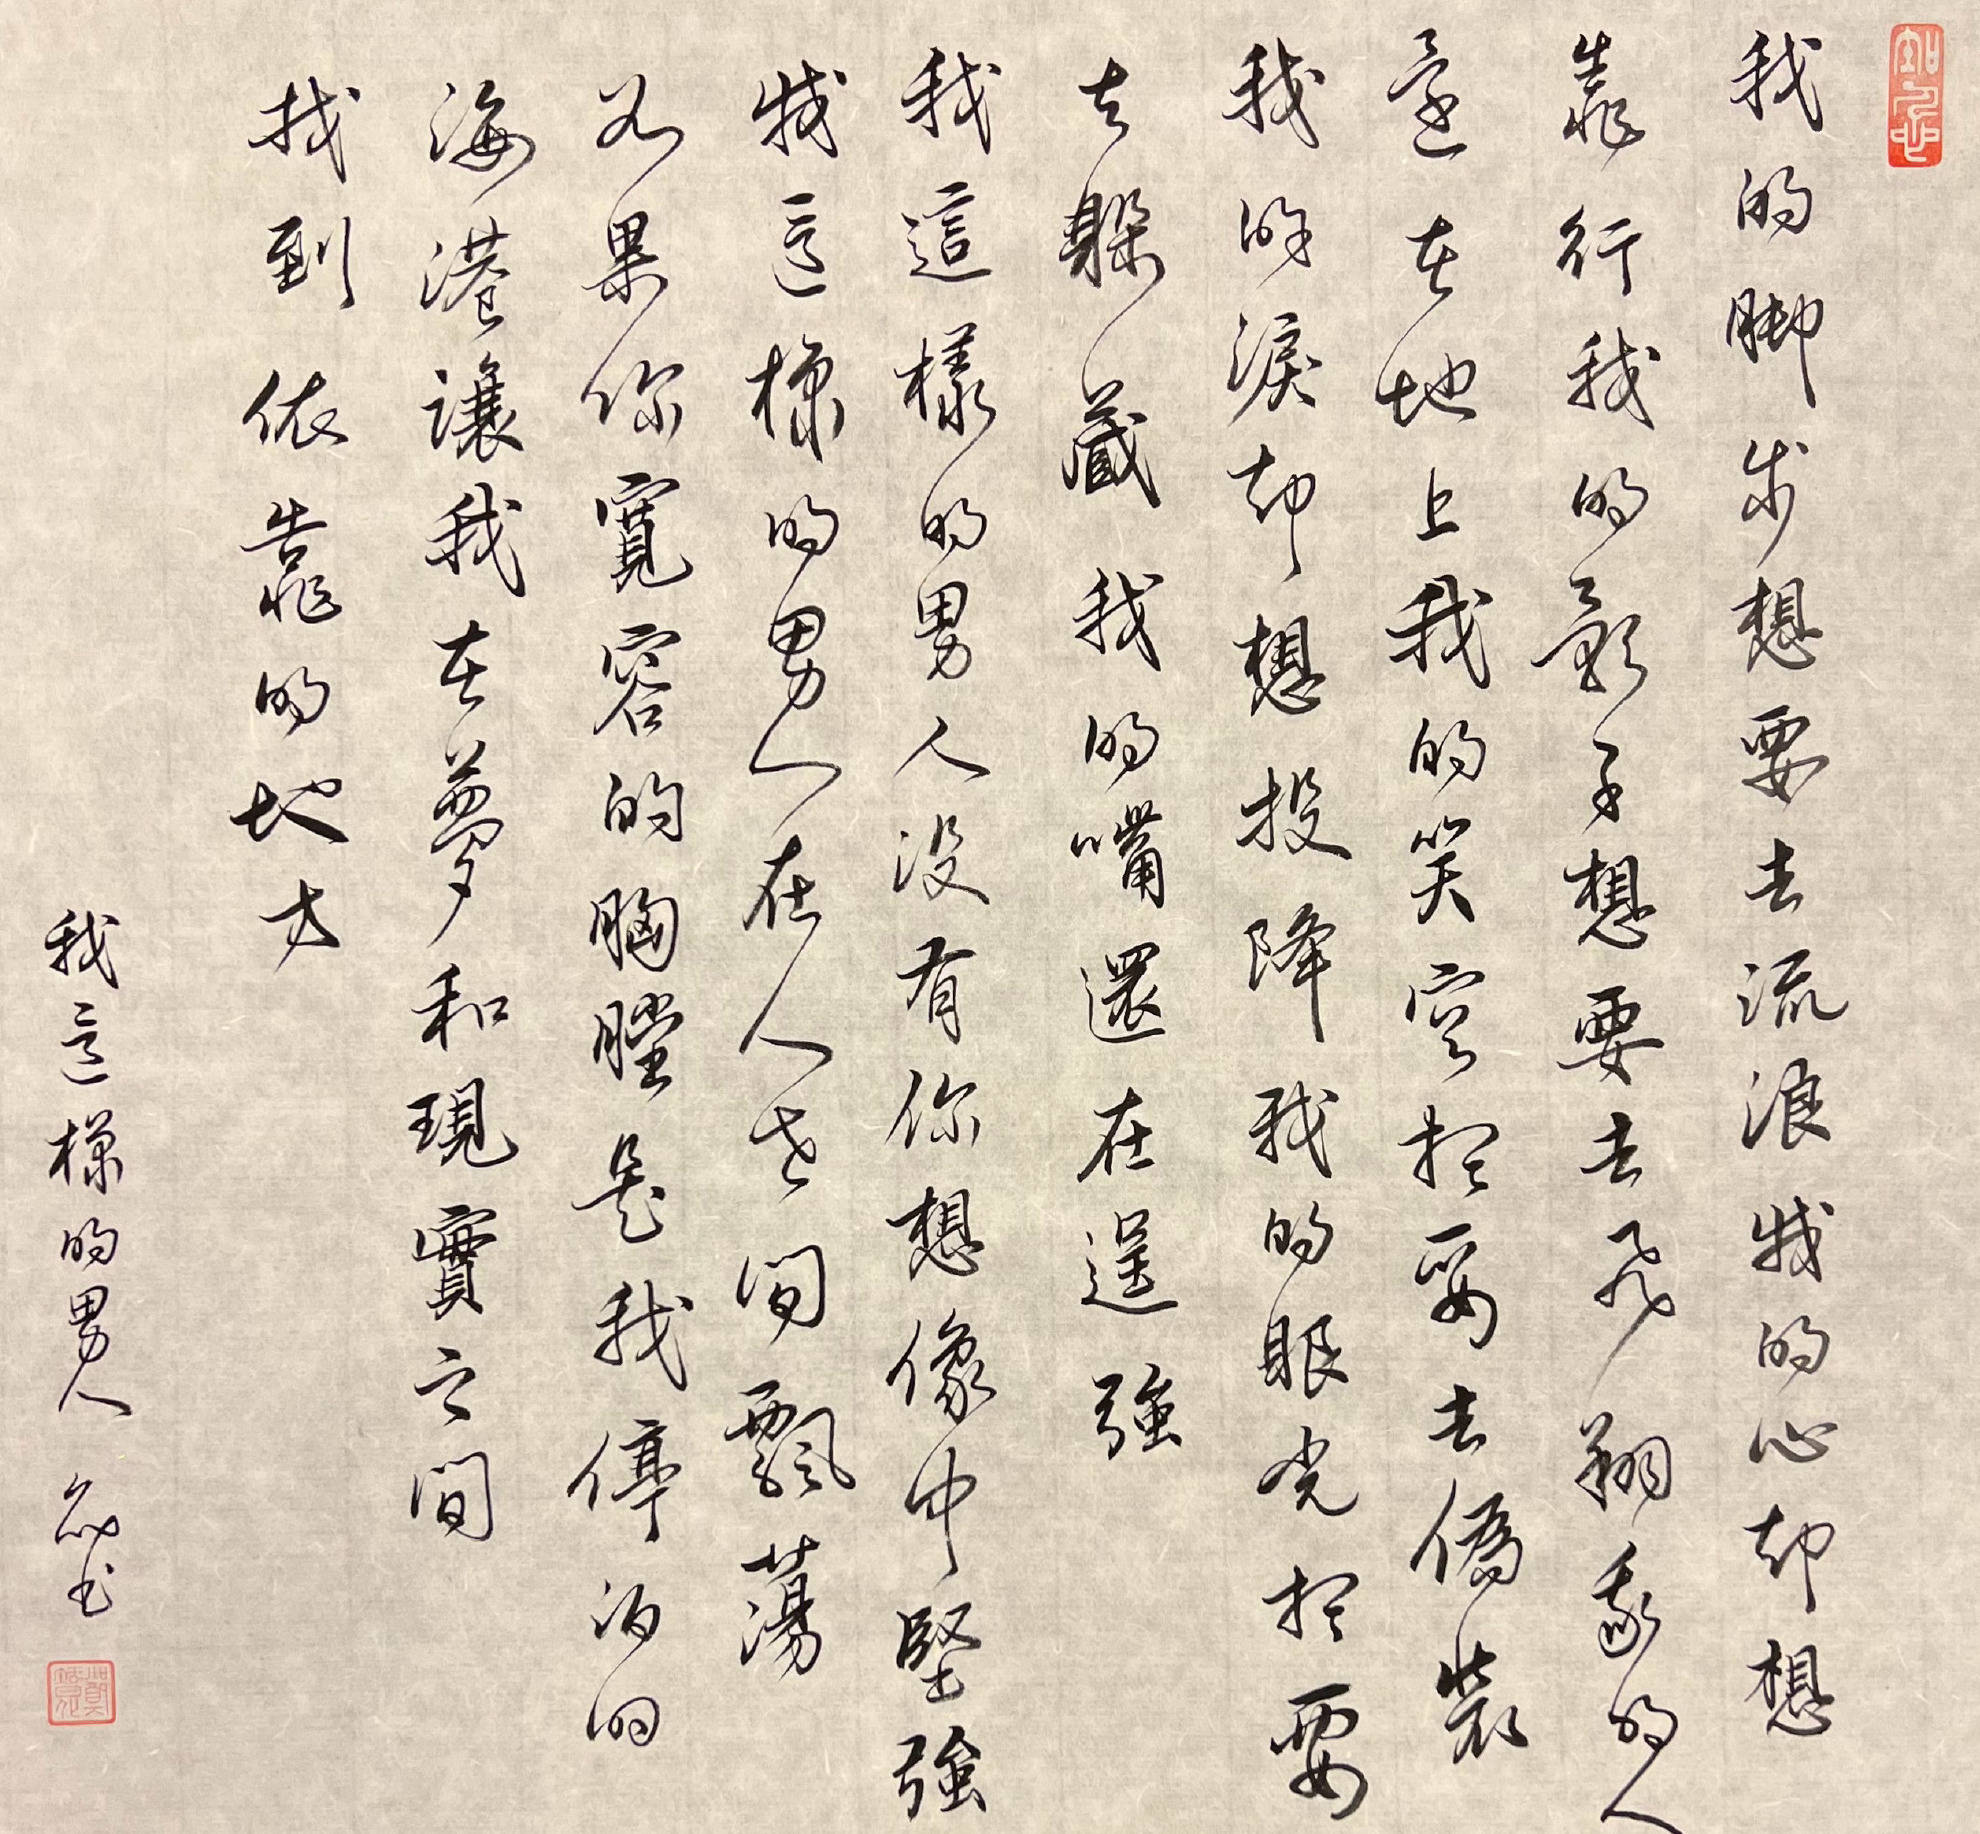 我的脚步想要去流浪我的心却想
靠行我的影子想要去飛翔我的人
還在地上我的笑容想要去偽裝
我的淚却想投降我的眼光想要
去躲藏我的嘴還在逞強
我這樣的男人没有你想像中堅強
我這樣的男人在人世間飄蕩
如果你寬容的胸膛是我停泊的
海港讓我在夢和現實之間
找到依靠的地方
我這樣的男人 書